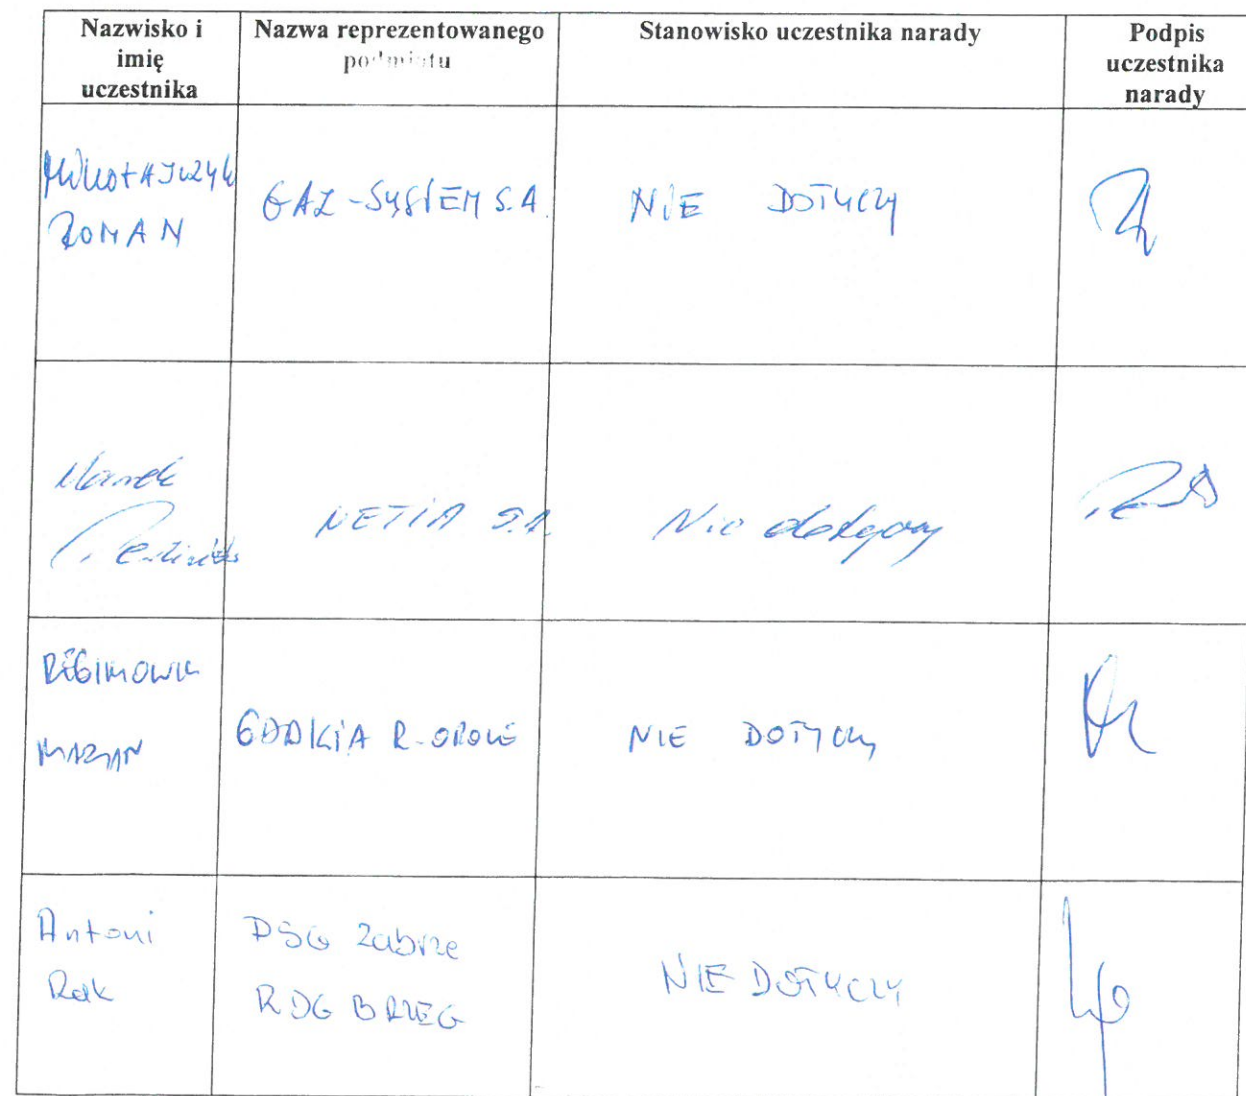 Nazwisko i
imię
uczestnika
Nazwa reprezentowanego
podmiotu
Stanowisko uczestnika narady
Podpis
uczestnika
narady
MIKOŁAJCZYK
ROMAN
GAZ-SYSTEM S.A.
NIE DOTYCZY
Marek
NETIA S.A.
Nie dotyczy
MARIAN
GDDKIA R-OPOLE
NIE DOTYCZY
Antoni
Rak
PSG Zabrze
RDG BRZEG
NIE DOTYCZY